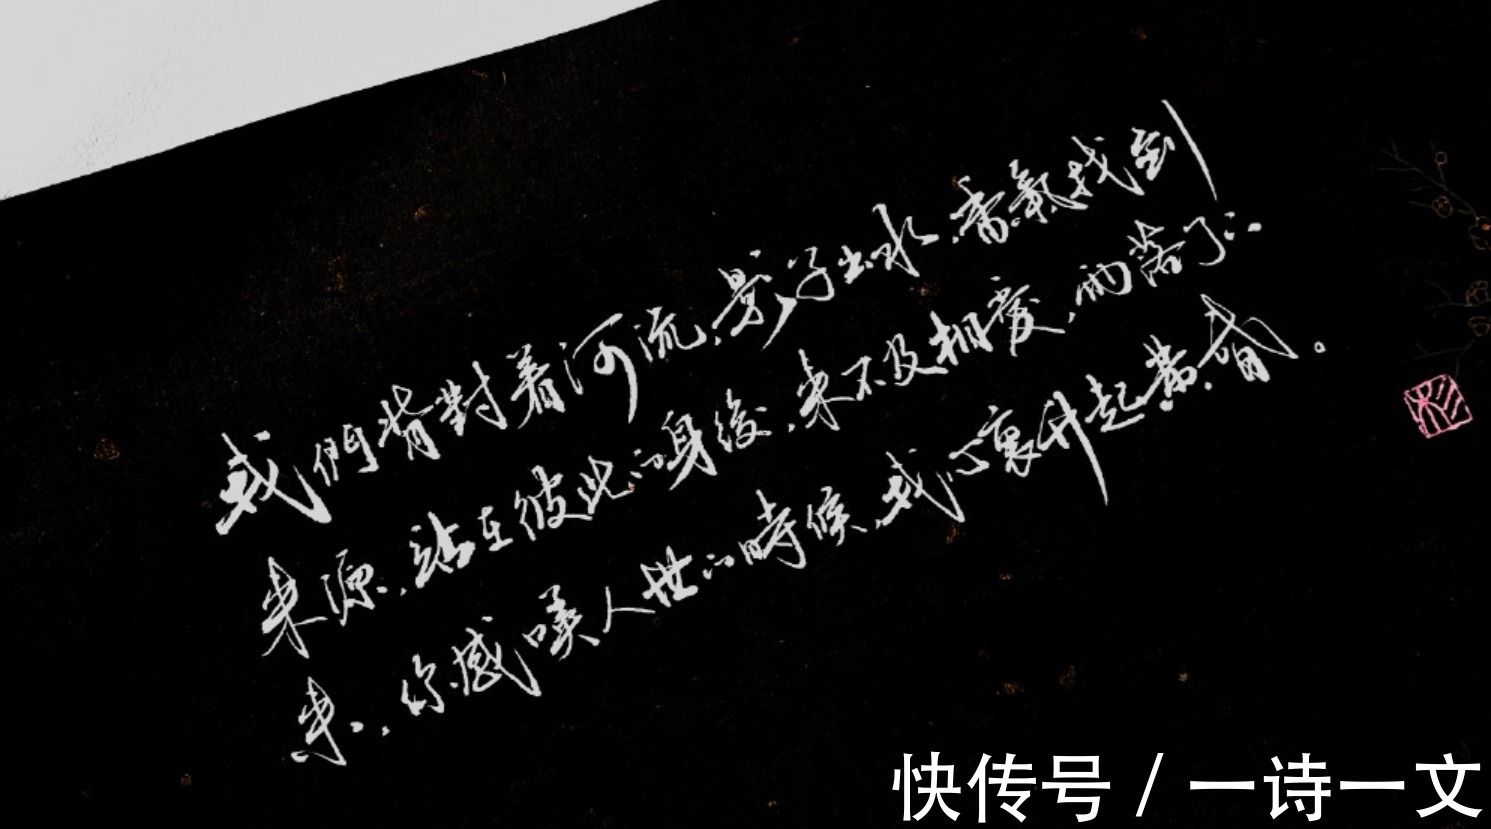 我們背對着河流,影子出水,香氣找到
来源,站在彼此的身後,来不及相愛,雨落了下
来,你感嘆人世的時候,我心裏升起黄昏。
快传号/一诗一文